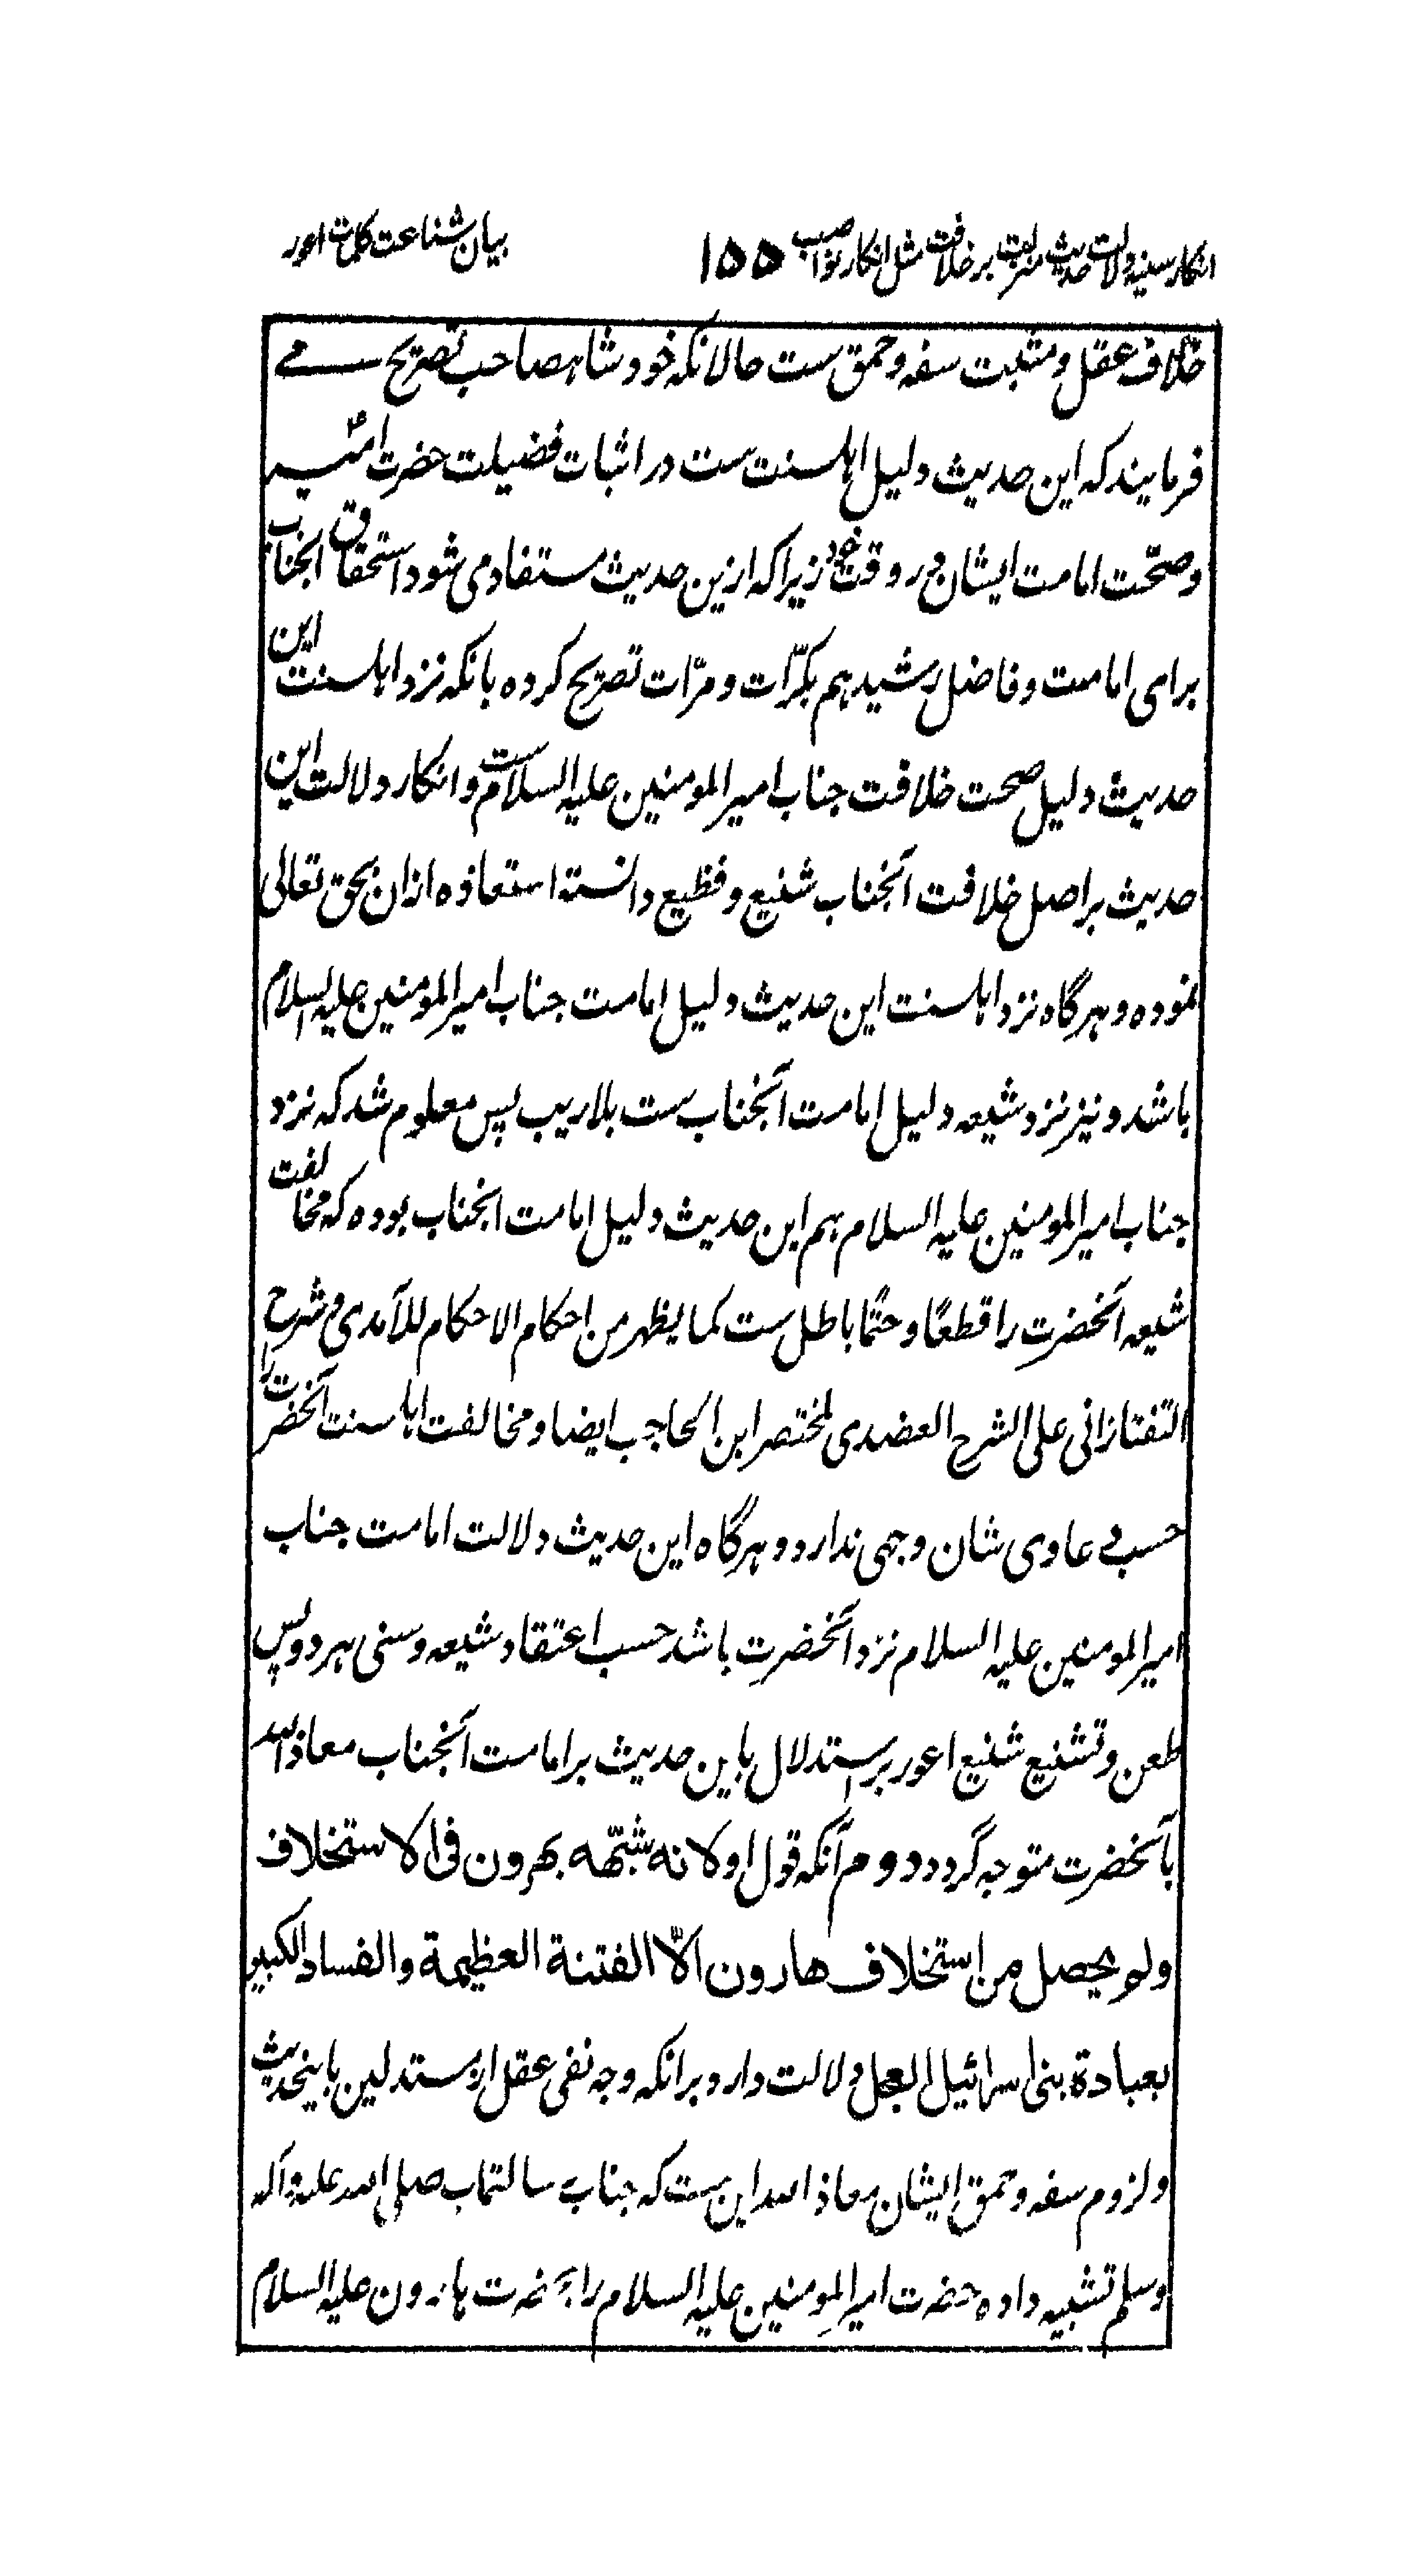 انکار سنیه دلالت حدیث منزلت بر خلافت مثل انکار نواصب ۱۵۵ بیان شناعت کلمات اعور
خلاف عقل و مثبت سفه و حمق ست حالانکه خود شاهصاحب تصریح مے
فرمایند که این حدیث دلیل اهلسنت ست در اثبات فضیلت حضرت امیرؑ
و صحّت امامت ایشان در وقت خود زیرا که ازین حدیث مستفاد می شود استحقاق آنجناب
برای امامت و فاضل رشید هم بکرّات و مرّات تصریح کرده بانکه نزد اهلسنت این
حدیث دلیل صحت خلافت جناب امیرالمومنین علیه السلام ست و انکار دلالت این
حدیث بر اصل خلافت آنجناب شنیع و فظیع دانسته استعاذه ازان بحق تعالی
نموده و هرگاه نزد اهلسنت این حدیث دلیل امامت جناب امیرالمومنین علیه السلام
باشد و نیز نزد شیعه دلیل امامت آنجناب ست بلاریب پس معلوم شد که نزد
جناب امیرالمومنین علیه السلام هم این حدیث دلیل امامت آنجناب بوده که مخالفت
شیعه آنحضرت را قطعًا و حتمًا باطل ست کما یظهر من احکام الاحکام للآمدی و شرح
التفتازانی علی الشرح العضدی لمختصر ابن الحاجب ایضا و مخالفت اهلسنت آنحضرت را
حسب دعاوی شان وجهی ندارد و هرگاه این حدیث دلالت امامت جناب
امیرالمومنین علیه السلام نزد آنحضرت باشد حسب اعتقاد شیعه و سنی هر دو پس
طعن و تشنیع شنیع اعور بر استدلال باین حدیث بر امامت آنجناب معاذ الله
بآنحضرت متوجه گردد دوم آنکه قول او لانه شبّهه بهرون فی الاستخلاف
ولو یحصل من استخلاف هارون الّا الفتنة العظیمة والفساد الکبیر
بعبادة بنی اسرائیل العجل دلالت دارد برانکه وجه نفی عقل از مستدلین باینحدیث
و لزوم سفه و حمق ایشان معاذ الله این ست که جناب رسالتماب صلی الله علیه و آله
و سلم تشبیه داده حضرت امیرالمومنین علیه السلام را بحضرت هارون علیه السلام